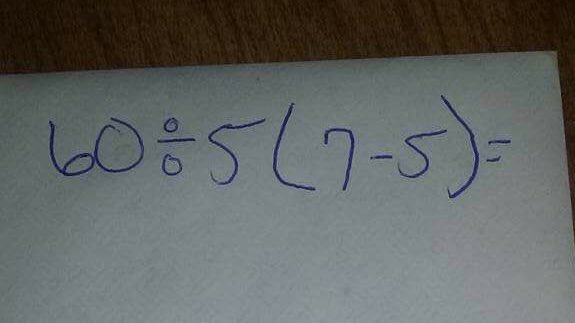 60÷5(7-5)=